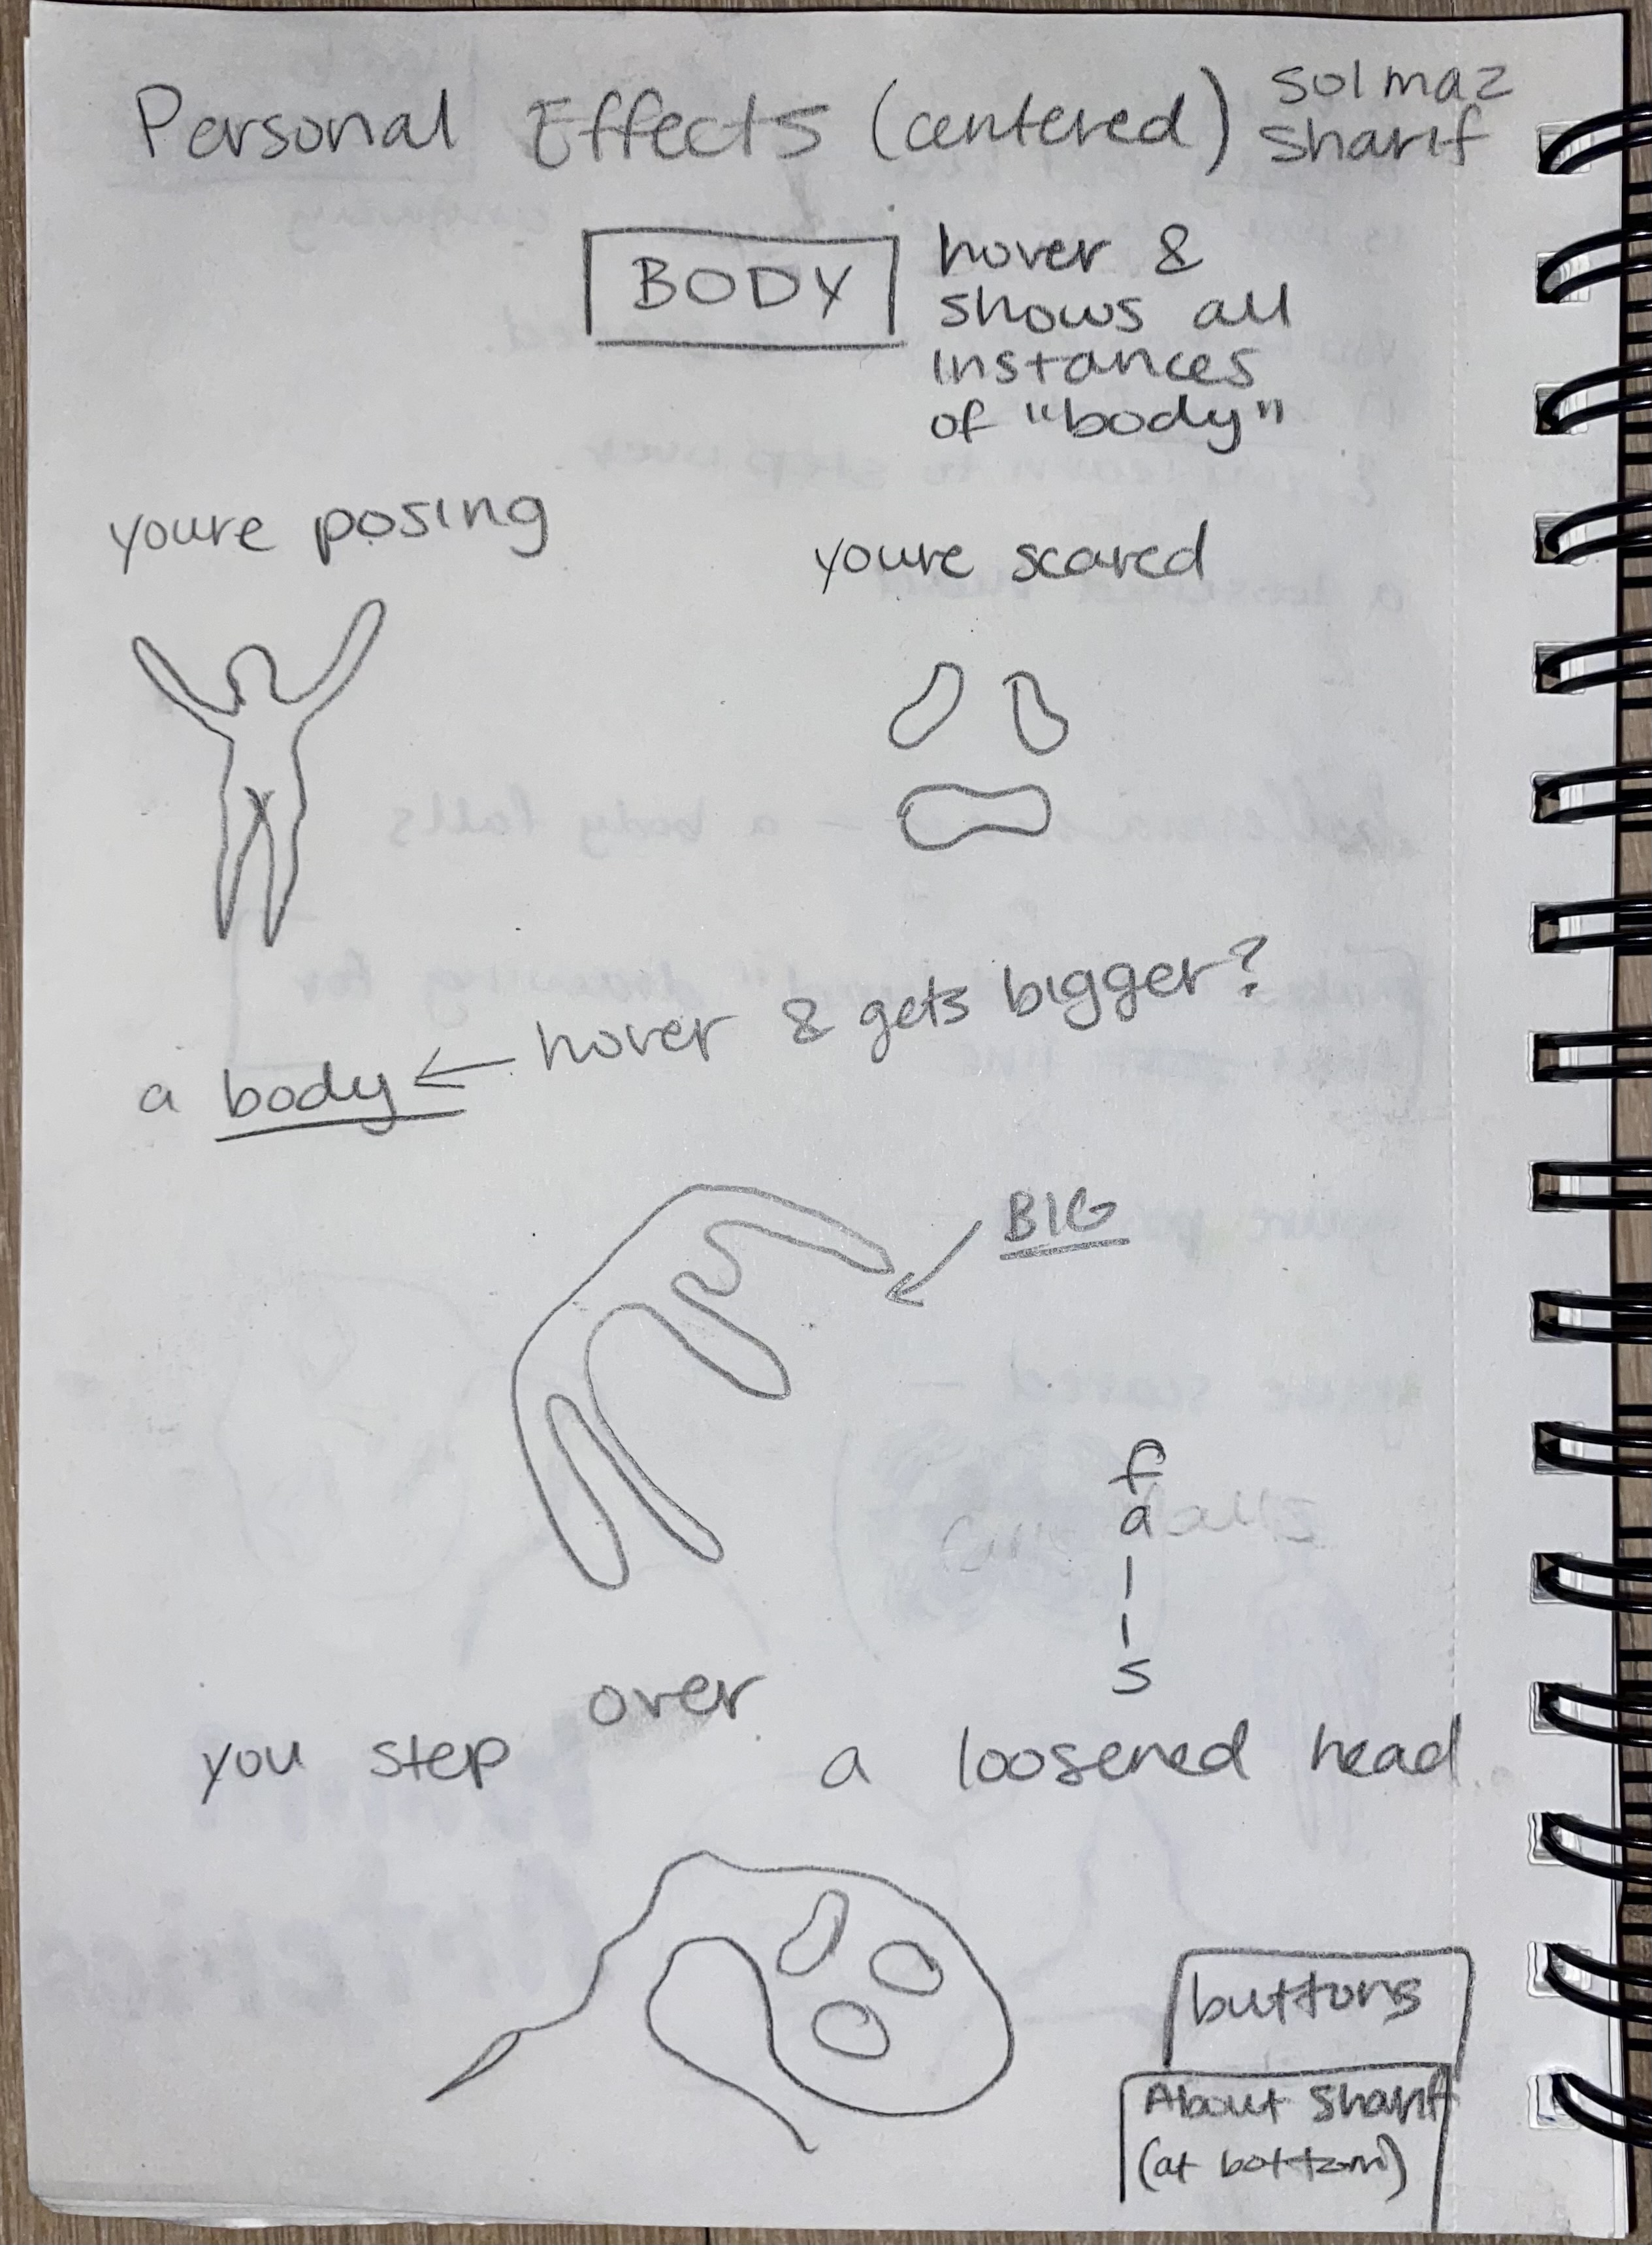 Personal Effects (centered) Solmaz
Sharif
BODY
hover &
shows all
instances
of "body"
youre posing
youre scared
hover & gets bigger?
a body
BIG
f
a
l
l
s
over
you step a loosened head
buttons
About Sharif
(at bottom)